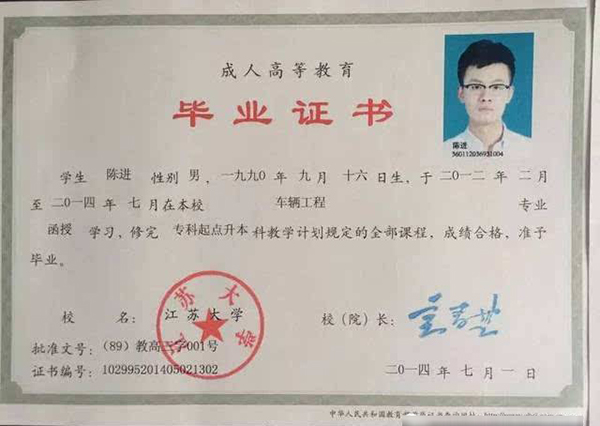 成人高等教育
毕业证书
陈进
360112036931004
学生 陈进 性别 男，一九九0 年 九 月 十六 日生，于 二0一二 年 二 月
至 二0一四 年 七 月在本校 车辆工程 专业
函授 学习，修完 专科起点升本 科教学计划规定的全部课程，成绩合格，准予
毕业。
校 名： 江苏大学 校（院）长：
江苏大学
批准文号：（89）教高三字001号
证书编号：102995201405021302 二0一四 年 七 月 一 日
中华人民共和国教育